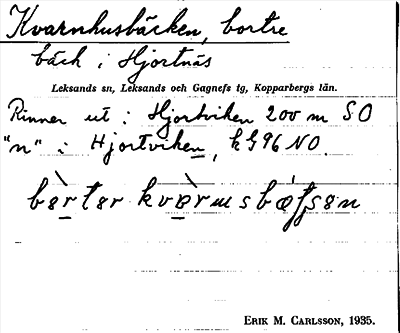 Kvarnhusbäcken, bortre
bäck i Hjortnäs
Leksands sn, Leksands och Gagnefs tg, Kopparbergs län.
Rinner ut i Hjortviken 200 m SO
"n" i Hjortviken, k G96 NO.
ERIK M. CARLSSON, 1935.